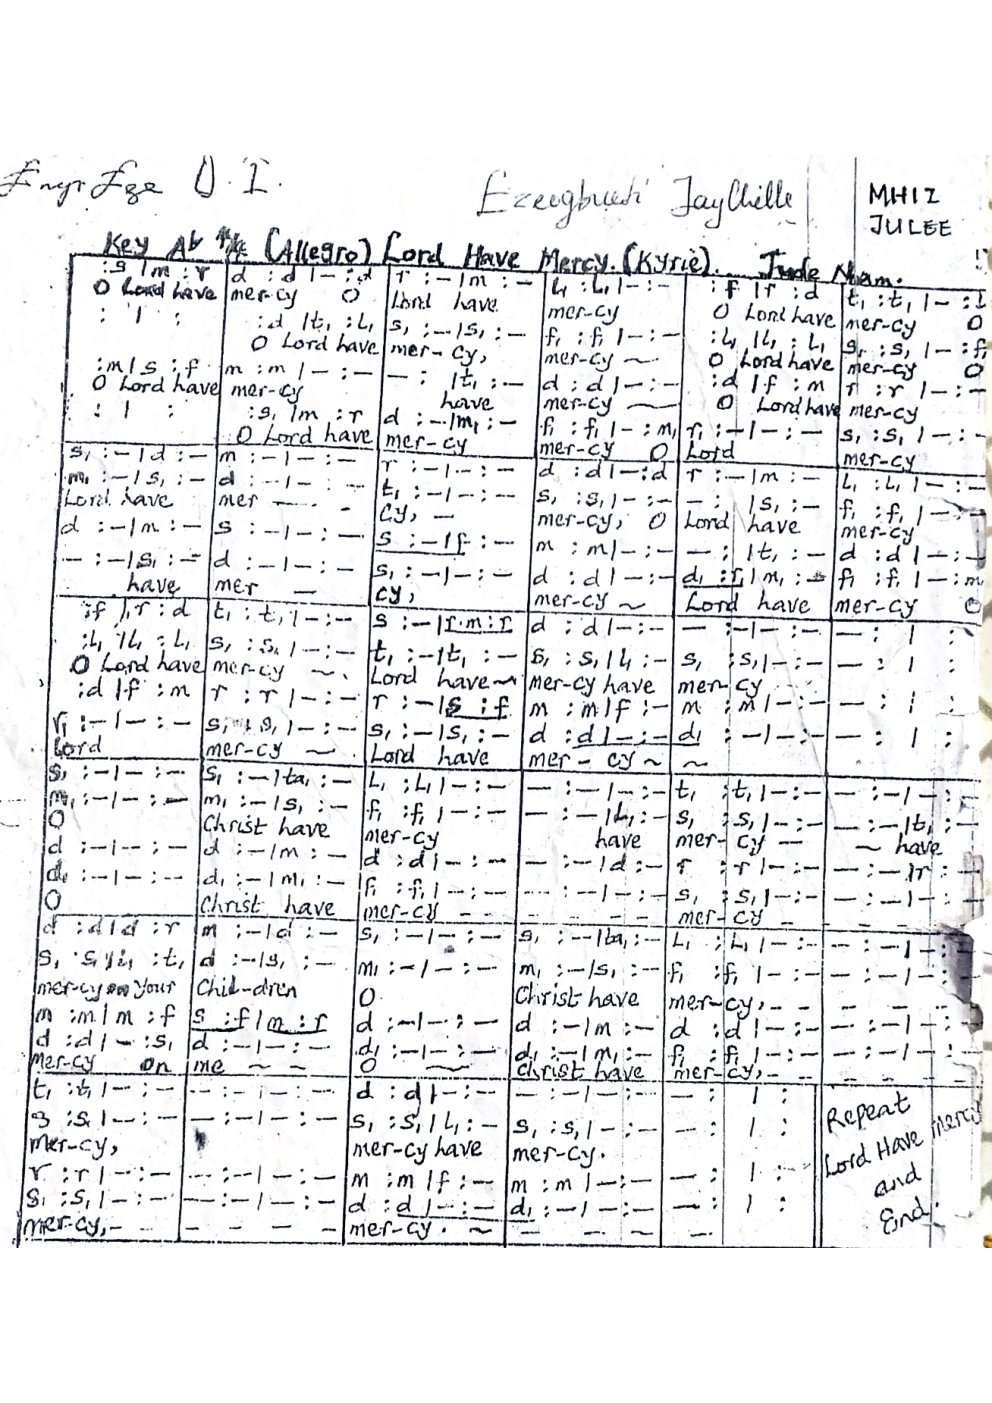 Engr Eze O. I.
Ezeegbueh JayChille
MHIZ
JULEE
Key Ab 4/4 (Allegro) Lord Have Mercy. (Kyrie). Jude Nnam.
:s | m : r   d : d | - : d   r : - | m : -   l, : l, | - : -   : f | r : d   t, : t, | - : l,
O Lord have   mer-cy   O   Lord have   mer-cy   O Lord have   mer-cy   O
:   |   :   : d | t, : l,   s, : - | s, : -   f, : f, | - : -   : l, | l, : l,   s, : s, | - : f,
O Lord have   mer-cy,   mer-cy   O Lord have   mer-cy   O
: m | s : f   m : m | - : -   - :   | t, : -   d : d | - : -   : d | f : m   r : r | - : -
O Lord have   mer-cy   have   mer-cy   O Lord have   mer-cy
:   |   :   : s, | m : r   d : - | m, : -   f, : f, | - : m,   r, : - | - : -   s, : s, | - : -
O Lord have   mer-cy   mer-cy   O   Lord   mer-cy
s, : - | d : -   m : - | - : -   r : - | - : -   d : d | - : d   r : - | m : -   l, : l, | - : -
m, : - | s, : -   d : - | - : -   t, : - | - : -   s, : s, | - : -   - :   | s, : -   f, : f, | - : -
Lord have   mer -   cy, -   mer-cy, O   Lord have   mer-cy
d : - | m : -   s : - | - : -   s : - | f : -   m : m | - : -   - :   | t, : -   d : d | - : -
- : - | s, : -   d : - | - : -   s, : - | - : -   d : d | - : -   d, : r, | m, : -   f, : f, | - : m
have   mer -   cy,   mer-cy   Lord have   mer-cy   O
: f | r : d   t, : t, | - : -   s : - | r . m : r   d : d | - : -   - : - | - : -   - :   |   :
: l, | l, : l,   s, : s, | - : -   t, : - | t, : -   s, : s, | l, : -   s, : s, | - : -   - :   |   :
O Lord have   mer-cy   Lord have   mer-cy have   mer-cy
: d | f : m   r : r | - : -   r : - | s : f   m : m | f : -   m : m | - : -   - :   |   :
r, : - | - : -   s, : s, | - : -   s, : - | s, : -   d : d | - : -   d, : - | - : -   - :   |   :
Lord   mer-cy   Lord have   mer - cy ~   ~
s, : - | - : -   s, : - | ta, : -   l, : l, | - : -   - : - | - : -   t, : t, | - : -   - : - | - : -
m, : - | - : -   m, : - | s, : -   f, : f, | - : -   - : - | l, : -   s, : s, | - : -   - : - | t, : -
O   Christ have   mer-cy   have   mer-cy -   ~ have
d : - | - : -   d : - | m : -   d : d | - : -   - : - | d : -   r : r | - : -   - : - | r : -
d, : - | - : -   d, : - | m, : -   f, : f, | - : -   - : - | - : -   s, : s, | - : -   - : - | - : -
O   Christ have   mer-cy - - - - -   mer-cy - - - -
d : d | d : r   m : - | d : -   s, : - | - : -   s, : - | ta, : -   l, : l, | - : -   - : - | - : -
s, : s, | l, : t,   d : - | s, : -   m, : - | - : -   m, : - | s, : -   f, : f, | - : -   - : - | - : -
mer-cy on your   Chil-dren   O   Christ have   mer-cy, - - -
m : m | m : f   s : f | m : r   d : - | - : -   d : - | m : -   d : d | - : -   - : - | - : -
d : d | - : s,   d : - | - : -   d, : - | - : -   d, : - | m, : -   f, : f, | - : -   - : - | - : -
mer-cy on   me ~ ~   O ~   Christ have   mer-cy, - - - - -
t, : t, | - : -   - : - | - : -   d : d | - : -   - : - | - : -   - :   |   :   Repeat
s, : s, | - : -   - : - | - : -   s, : s, | l, : -   s, : s, | - : -   - :   |   :   Lord Have Mercy
mer-cy,   mer-cy have   mer-cy.   and
r : r | - : -   - : - | - : -   m : m | f : -   m : m | - : -   - :   |   :   End.
s, : s, | - : -   - : - | - : -   d : d, | - : -   d, : - | - : -   - :   |   :
mer-cy, - - - - -   mer-cy. ~ - - - -